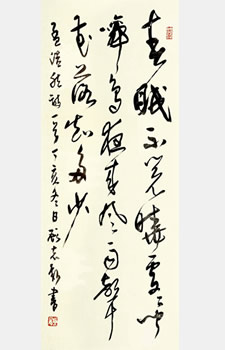 春眠不覺曉處々聞
啼鳥夜來風雨聲
花落知多少
孟浩然詩一首丁亥冬日書